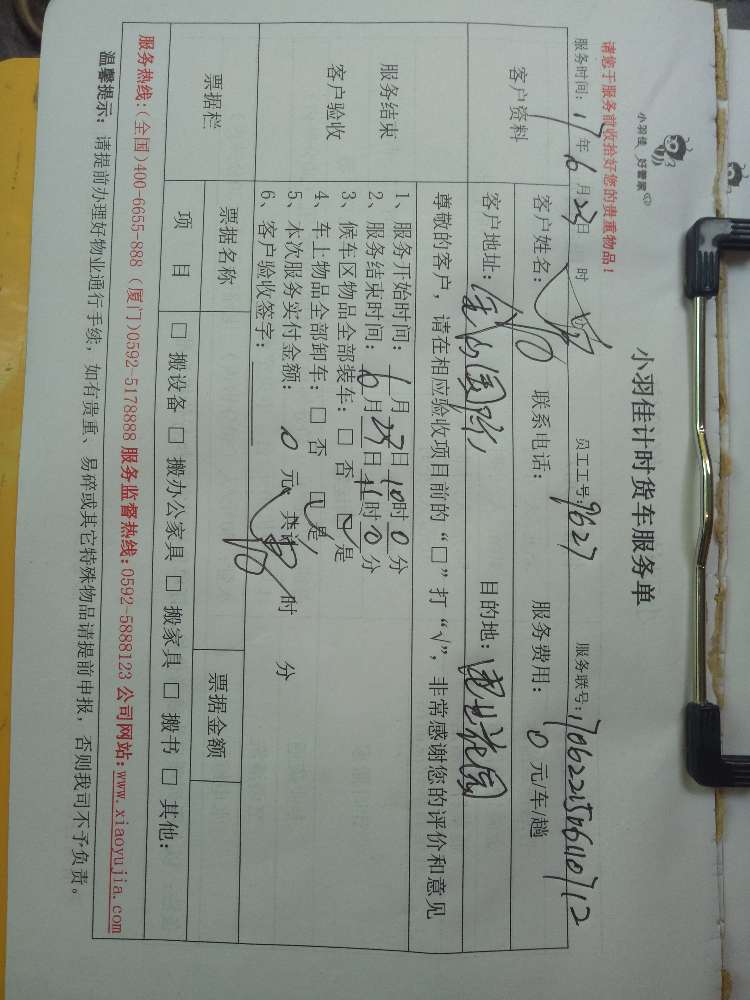 小羽佳 好管家
小羽佳计时货车服务单
请您于服务前收拾好您的贵重物品！
服务时间：17年6月23日 时 员工工号：9627 服务联号：17062215461110712
客户资料
客户姓名： 联系电话： 服务费用：0元/车/趟
客户地址：金山国际 目的地：建业花园
服务结束
客户验收
尊敬的客户，请在相应验收项目前的“□”打“√”，非常感谢您的评价和意见
1、服务开始时间：6月23日10时0分
2、服务结束时间：6月23日11时0分
3、候车区物品全部装车：□ 否 ☑ 是
4、车上物品全部卸车：□ 否 ☑ 是
5、本次服务实付金额：0元，共计 时 分
6、客户验收签字：
票据栏
票据名称 票据金额
项 目 □ 搬设备 □ 搬办公家具 □ 搬家具 □ 搬书 □ 其他：
服务热线：(全国)400-6655-888 (厦门)0592-5178888 服务监督热线：0592-5888123 公司网站：www.xiaoyujia.com
温馨提示：请提前办理好物业通行手续，如有贵重、易碎或其它特殊物品请提前申报，否则我司不予负责。